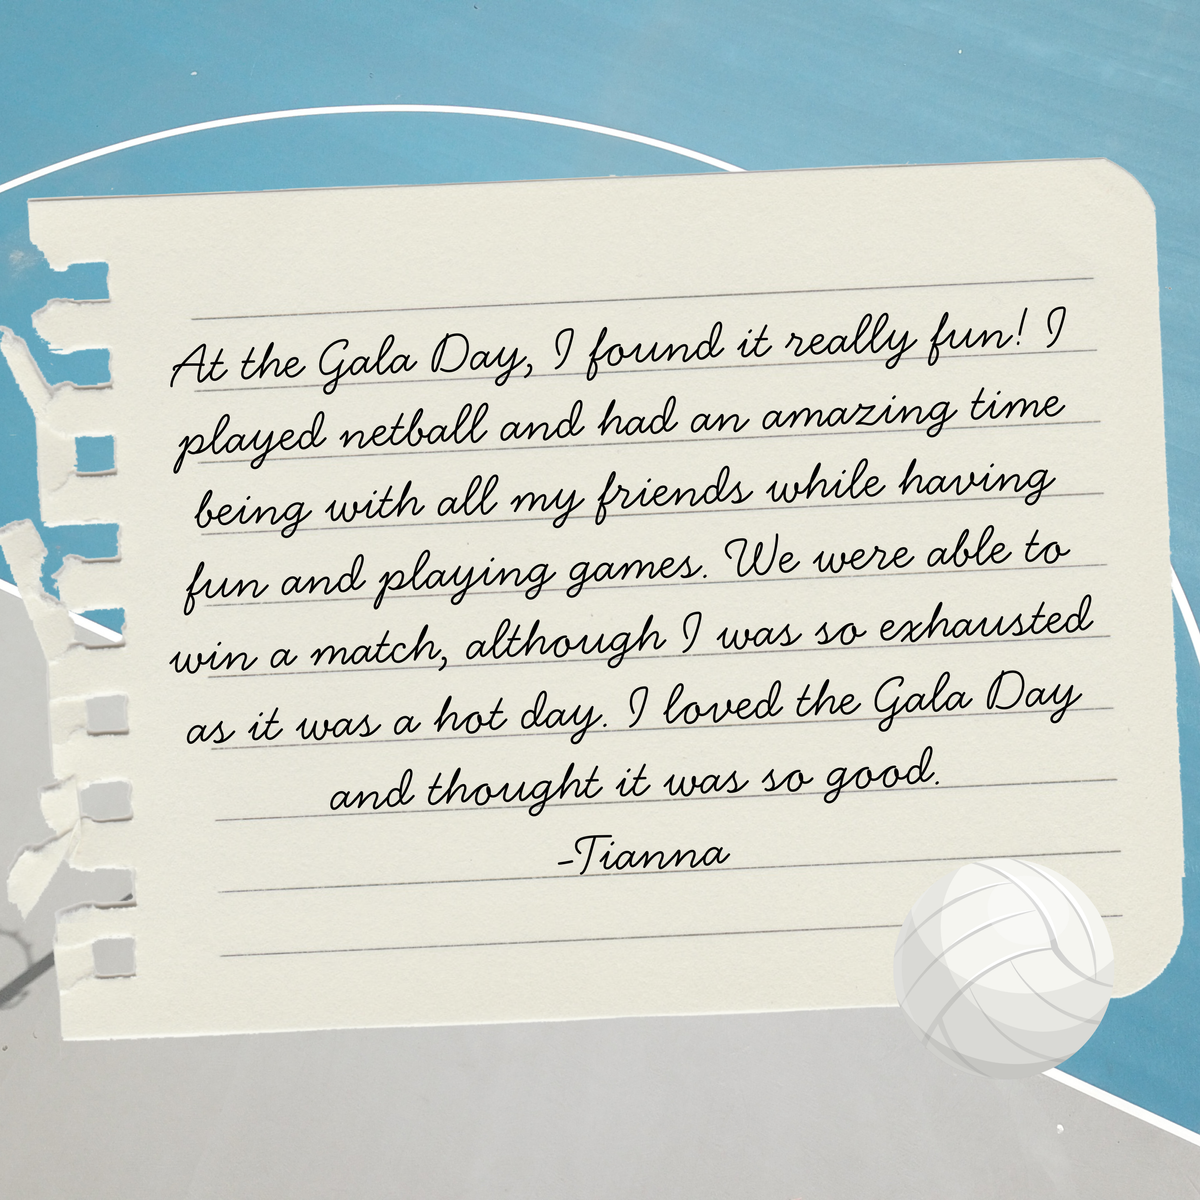 At the Gala Day, I found it really fun! I
played netball and had an amazing time
being with all my friends while having
fun and playing games. We were able to
win a match, although I was so exhausted
as it was a hot day. I loved the Gala Day
and thought it was so good.
-Tianna